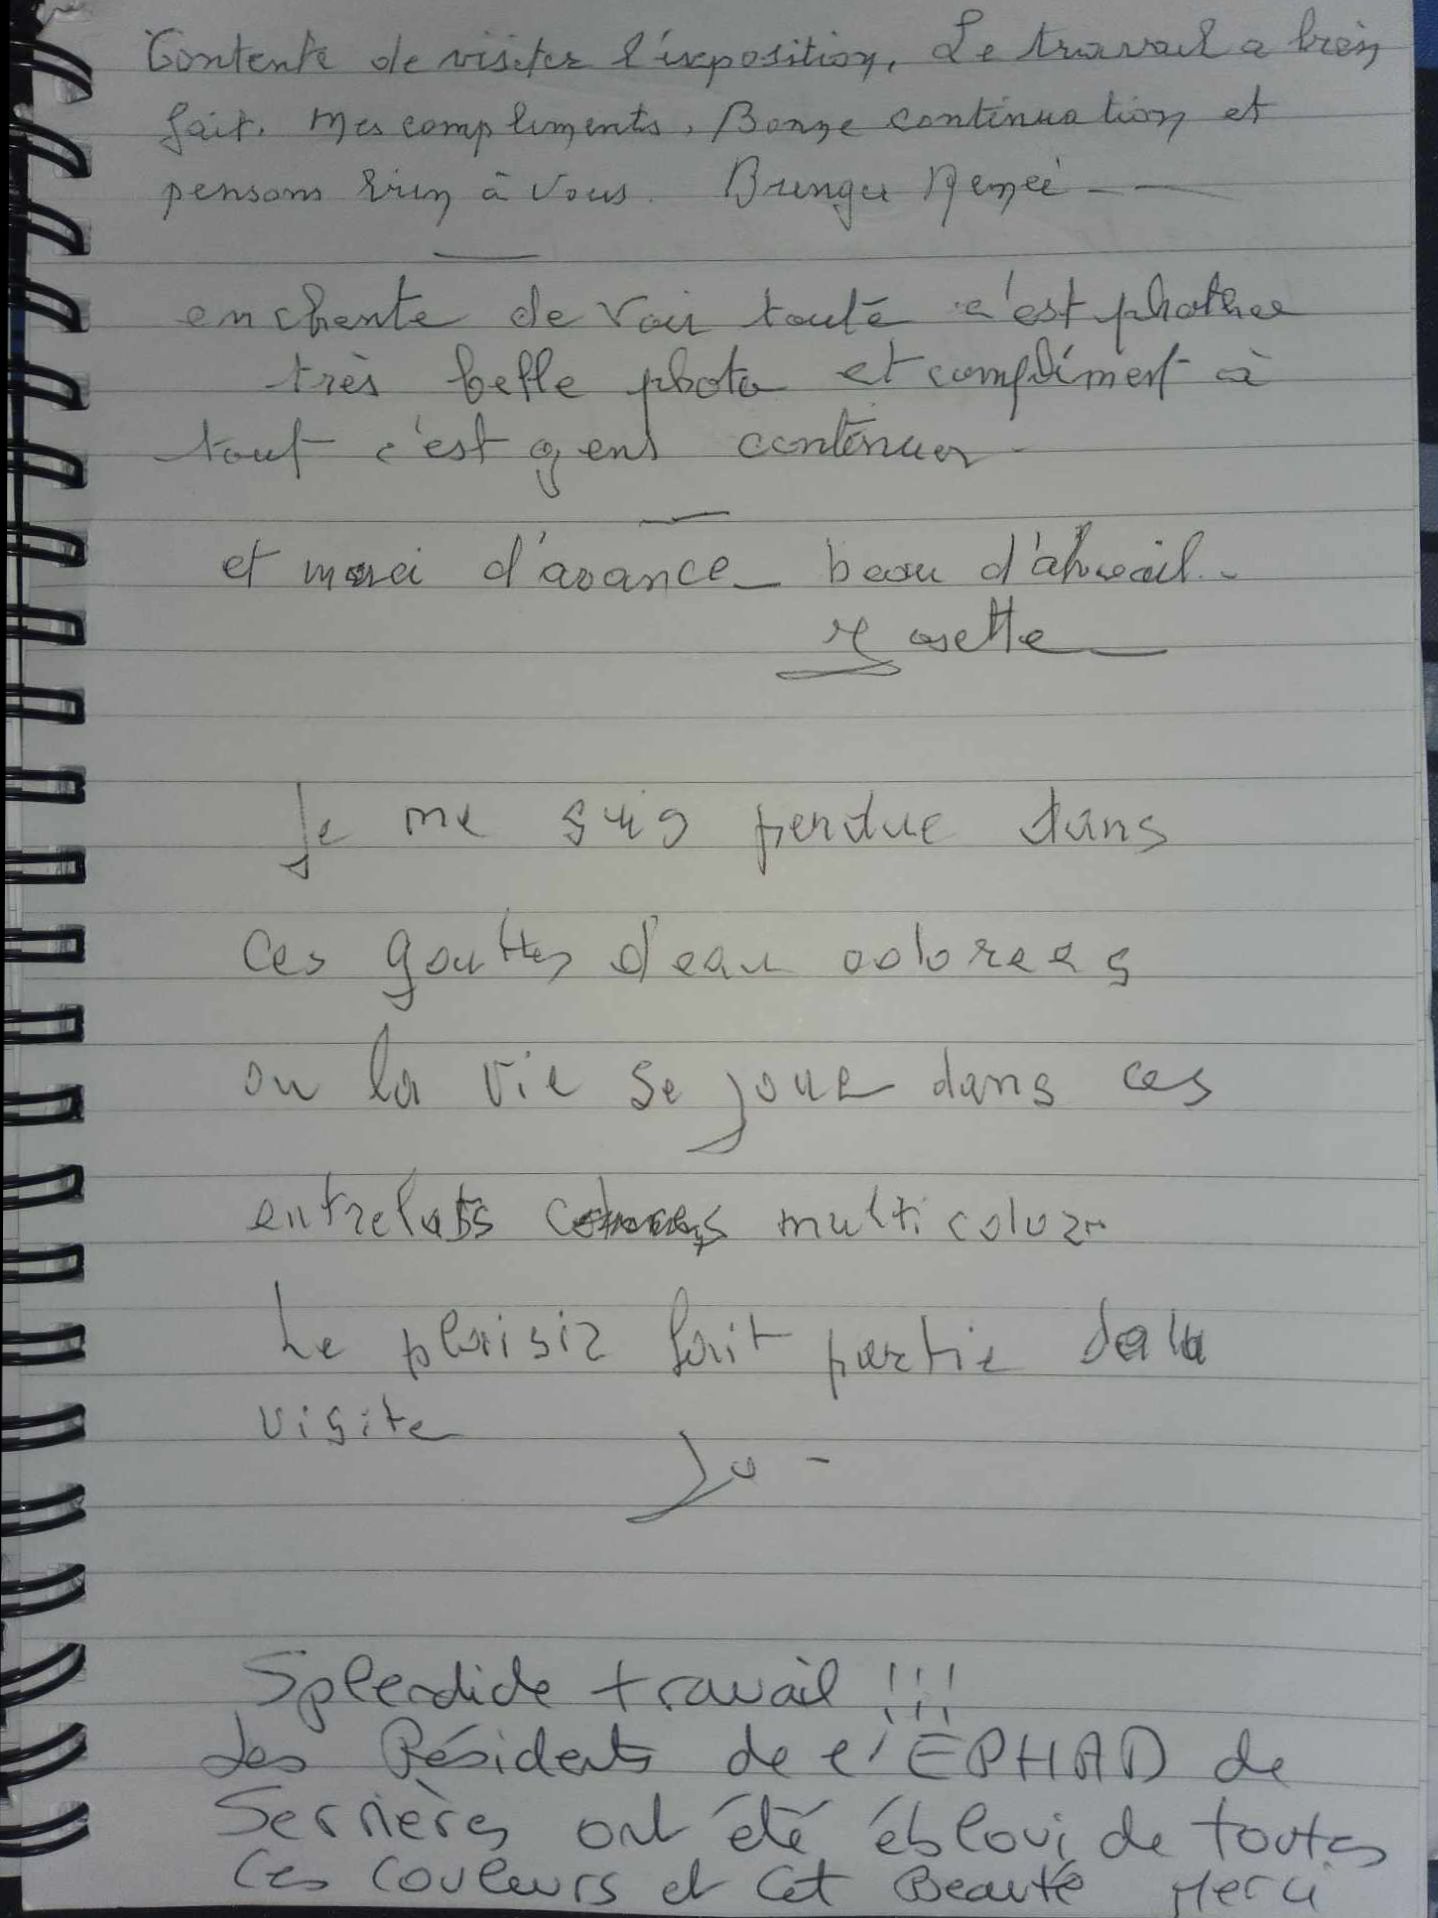 Contente de visiter l'exposition. Le travail a bien
fait. Mes compliments. Bonne continuation et
pensons bien à vous. Renée
enchente de voir toute c'est
très belle photo et compliment à
tout c'est gens continuer
et merci d'avance beau
rosette
Je me suis perdue dans
ces gouttes d'eau colorees
ou la vie se joue dans ces
entrelats multicolor
Le plaisir fait partie de la
visite
Jo -
Splendide travail !!!
Les Résidents de l'EPHAD de
Serrières ont été ébloui de toutes
ces couleurs et cet Beauté Merci